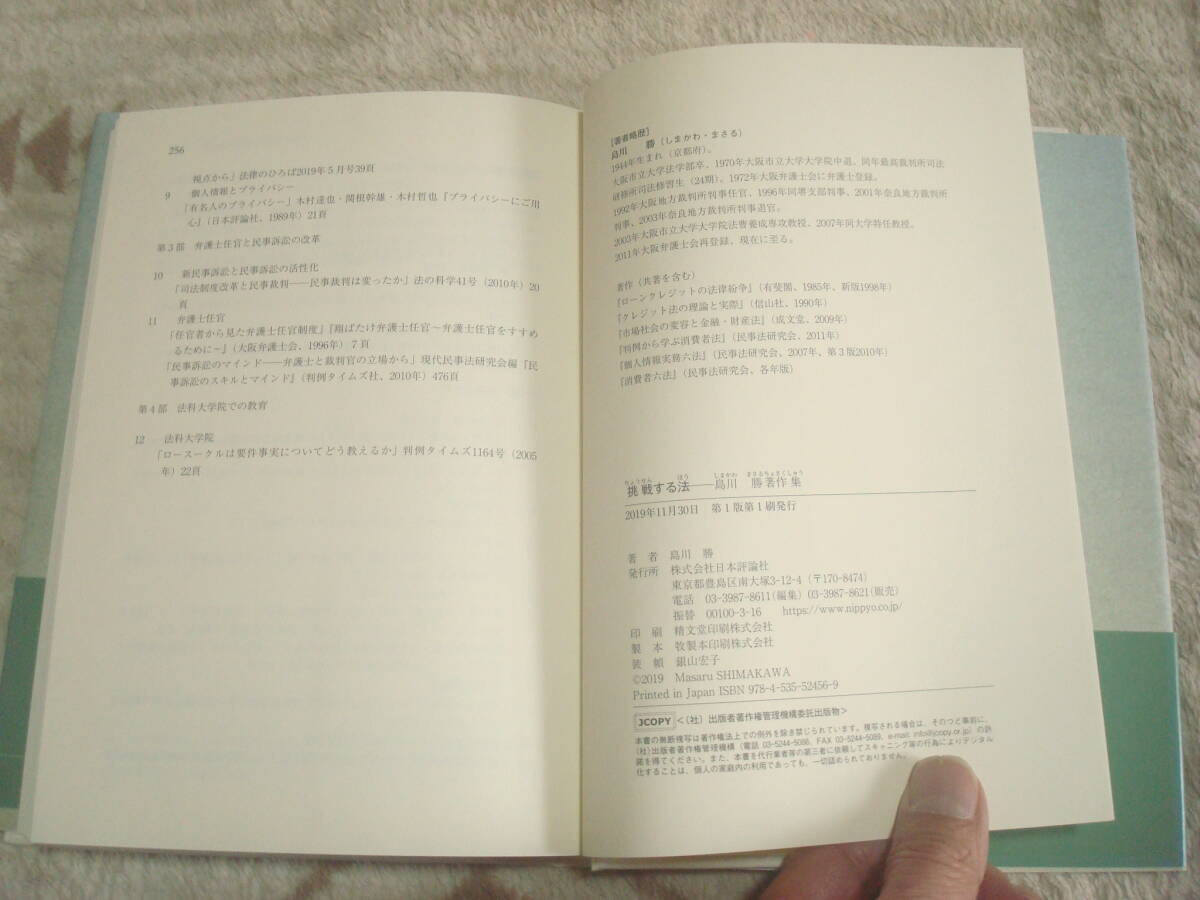 256
視点から」法律のひろば2019年5月号39頁
9 個人情報とプライバシー
「有名人のプライバシー」木村達也・関根幹雄・木村哲也『プライバシーにご用
心』(日本評論社、1989年)21頁
第3部 弁護士任官と民事訴訟の改革
10 新民事訴訟と民事訴訟の活性化
「司法制度改革と民事裁判——民事裁判は変ったか」法の科学41号(2010年)20
頁
11 弁護士任官
「任官者から見た弁護士任官制度」『翔ばたけ弁護士任官〜弁護士任官をすすめ
るために〜』(大阪弁護士会、1996年)7頁
「民事訴訟のマインド——弁護士と裁判官の立場から」現代民事法研究会編『民
事訴訟のスキルとマインド』(判例タイムズ社、2010年)476頁
第4部 法科大学院での教育
12 法科大学院
「ロースークルは要件事実についてどう教えるか」判例タイムズ1164号(2005
年)22頁
[著者略歴]
島川 勝(しまかわ・まさる)
1944年生まれ(京都府)。
大阪市立大学法学部卒、1970年大阪市立大学大学院中退、同年最高裁判所司法
研修所司法修習生(24期)。1972年大阪弁護士会に弁護士登録。
1992年大阪地方裁判所判事任官、1996年同堺支部判事、2001年奈良地方裁判所
判事、2003年奈良地方裁判所判事退官。
2003年大阪市立大学大学院法曹養成専攻教授、2007年同大学特任教授。
2011年大阪弁護士会再登録、現在に至る。
著作(共著を含む)
『ローンクレジットの法律紛争』(有斐閣、1985年、新版1998年)
『クレジット法の理論と実際』(信山社、1990年)
『市場社会の変容と金融・財産法』(成文堂、2009年)
『判例から学ぶ消費者法』(民事法研究会、2011年)
『個人情報実務六法』(民事法研究会、2007年、第3版2010年)
『消費者六法』(民事法研究会、各年版)
ちょうせん ほう しまかわ まさるちょさくしゅう
挑戦する法——島川 勝著作集
2019年11月30日 第1版第1刷発行
著者 島川 勝
発行所 株式会社日本評論社
東京都豊島区南大塚3-12-4(〒170-8474)
電話 03-3987-8611(編集)03-3987-8621(販売)
振替 00100-3-16 https://www.nippyo.co.jp/
印刷 精文堂印刷株式会社
製本 牧製本印刷株式会社
装幀 銀山宏子
©2019 Masaru SHIMAKAWA
Printed in Japan ISBN 978-4-535-52456-9
JCOPY <(社)出版者著作権管理機構委託出版物>
本書の無断複写は著作権法上での例外を除き禁じられています。複写される場合は、そのつど事前に、
(社)出版者著作権管理機構(電話 03-5244-5088、FAX 03-5244-5089、e-mail: info@jcopy.or.jp)の許
諾を得てください。また、本書を代行業者等の第三者に依頼してスキャニング等の行為によりデジタル
化することは、個人の家庭内の利用であっても、一切認められておりません。